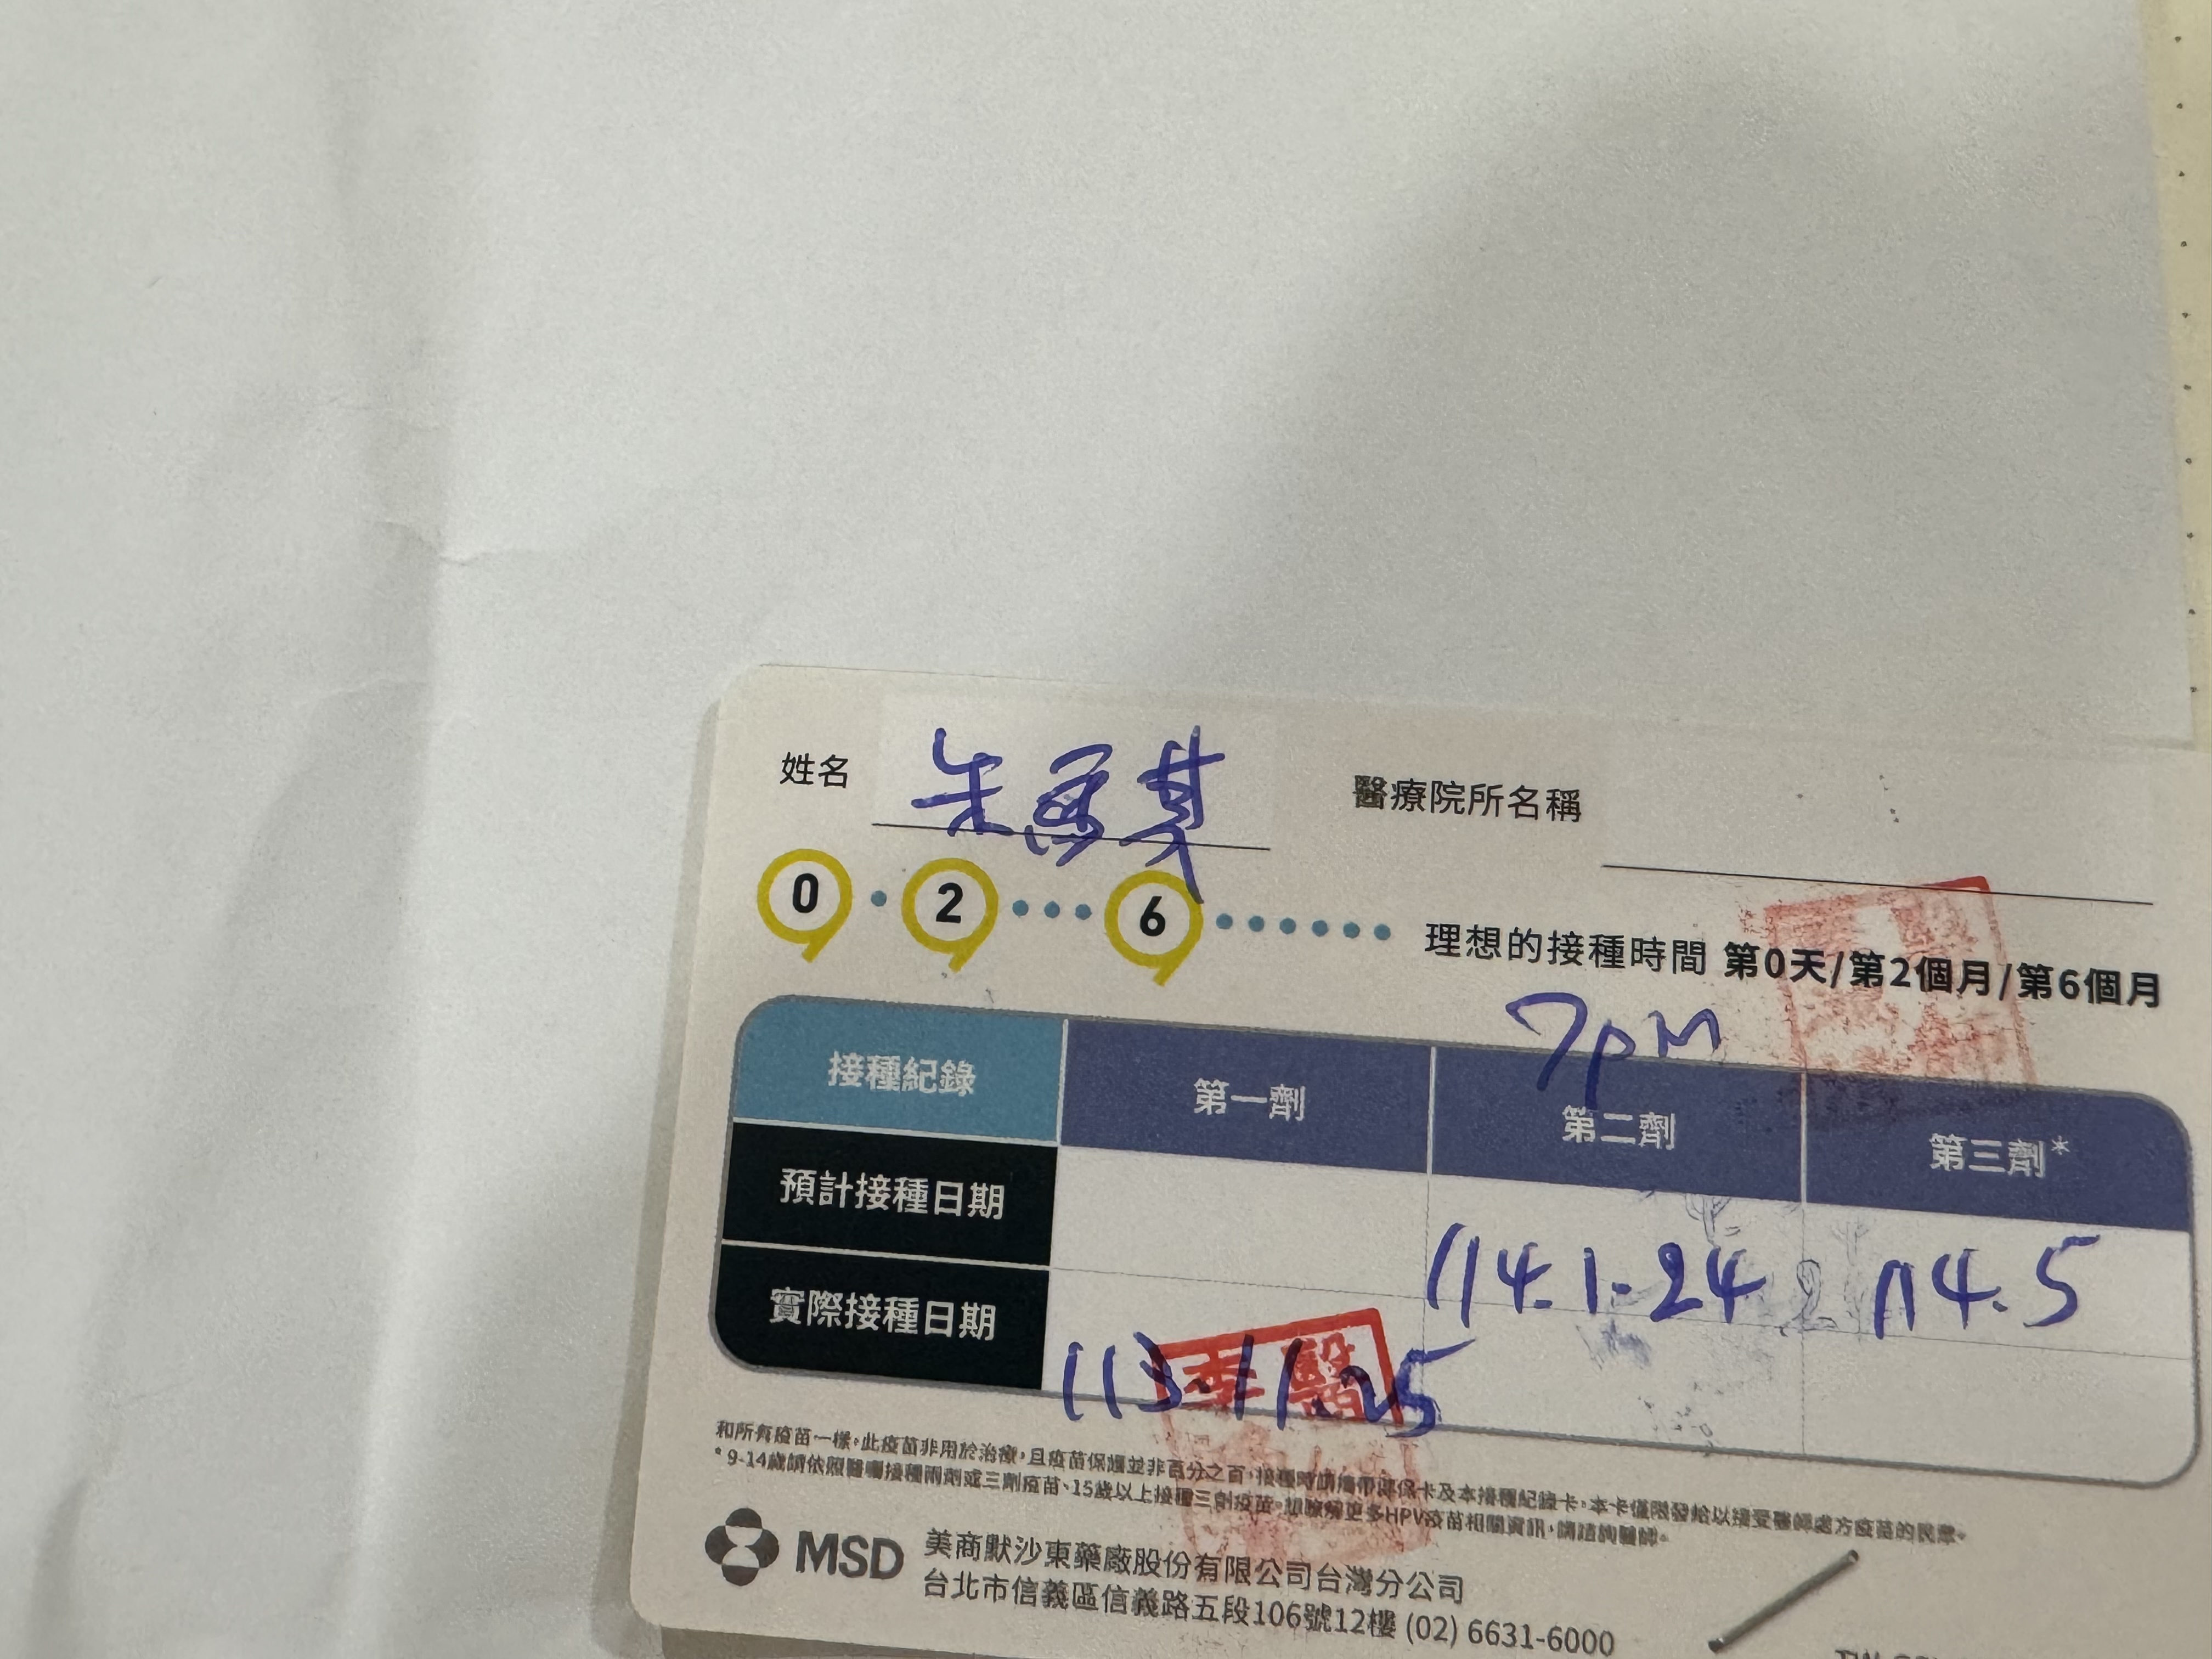 姓名 朱 醫療院所名稱
0 2 6 理想的接種時間 第0天/第2個月/第6個月
7pm
接種紀錄 第一劑 第二劑 第三劑*
預計接種日期 114.1.24 114.5
實際接種日期 113.11.25
和所有疫苗一樣，此疫苗非用於治療，且疫苗保護並非百分之百，接種時請攜帶健保卡及本接種紀錄卡。本卡僅限發給以接受醫師處方疫苗的民眾。
*9-14歲請依照醫囑接種兩劑或三劑疫苗、15歲以上接種三劑疫苗。想瞭解更多HPV疫苗相關資訊，請諮詢醫師。
MSD 美商默沙東藥廠股份有限公司台灣分公司
台北市信義區信義路五段106號12樓 (02) 6631-6000